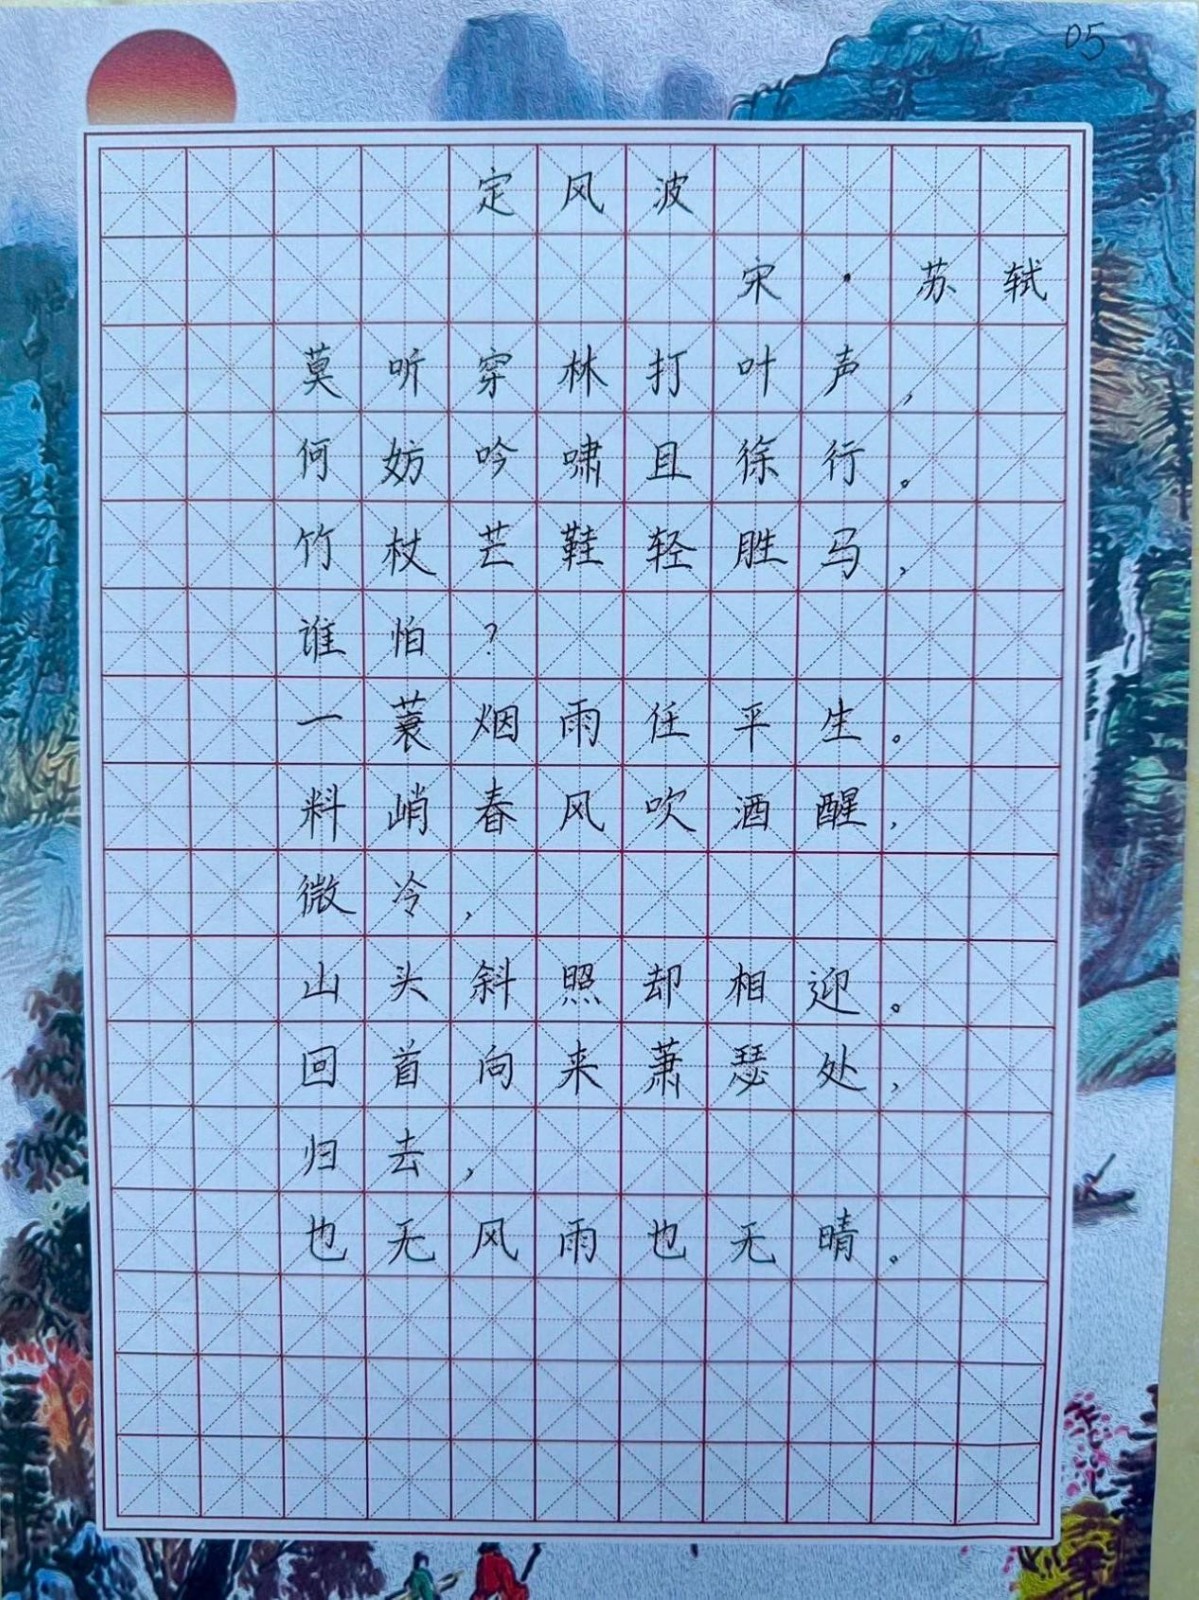 05
定风波
宋·苏轼
莫听穿林打叶声，
何妨吟啸且徐行。
竹杖芒鞋轻胜马，
谁怕？
一蓑烟雨任平生。
料峭春风吹酒醒，
微冷，
山头斜照却相迎。
回首向来萧瑟处，
归去，
也无风雨也无晴。